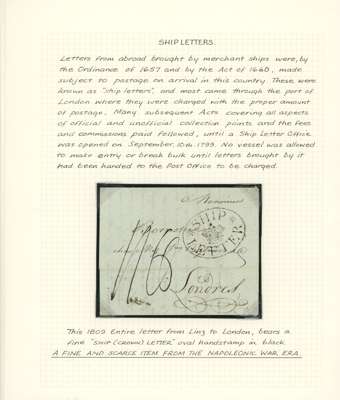 SHIP LETTERS.
Letters from abroad brought by merchant ships were, by
the Ordinance of 1657 and by the Act of 1660, made
subject to postage on arrival in this country. These were
known as "ship letters", and most came through the port of
London where they were charged with the proper amount
of postage. Many subsequent Acts covering all aspects
of official and unofficial collection points and the fees
and commissions paid followed, until a Ship Letter Office
was opened on September, 10th 1799. No vessel was allowed
to make entry or break bulk until letters brought by it
had been handed to the Post Office to be charged.
Monsieur
SHIP
LETTER
Londres
This 1802 Entire letter from Linz to London, bears a
fine "SHIP (CROWN) LETTER" oval handstamp in black.
A FINE AND SCARCE ITEM FROM THE NAPOLEONIC WAR ERA.